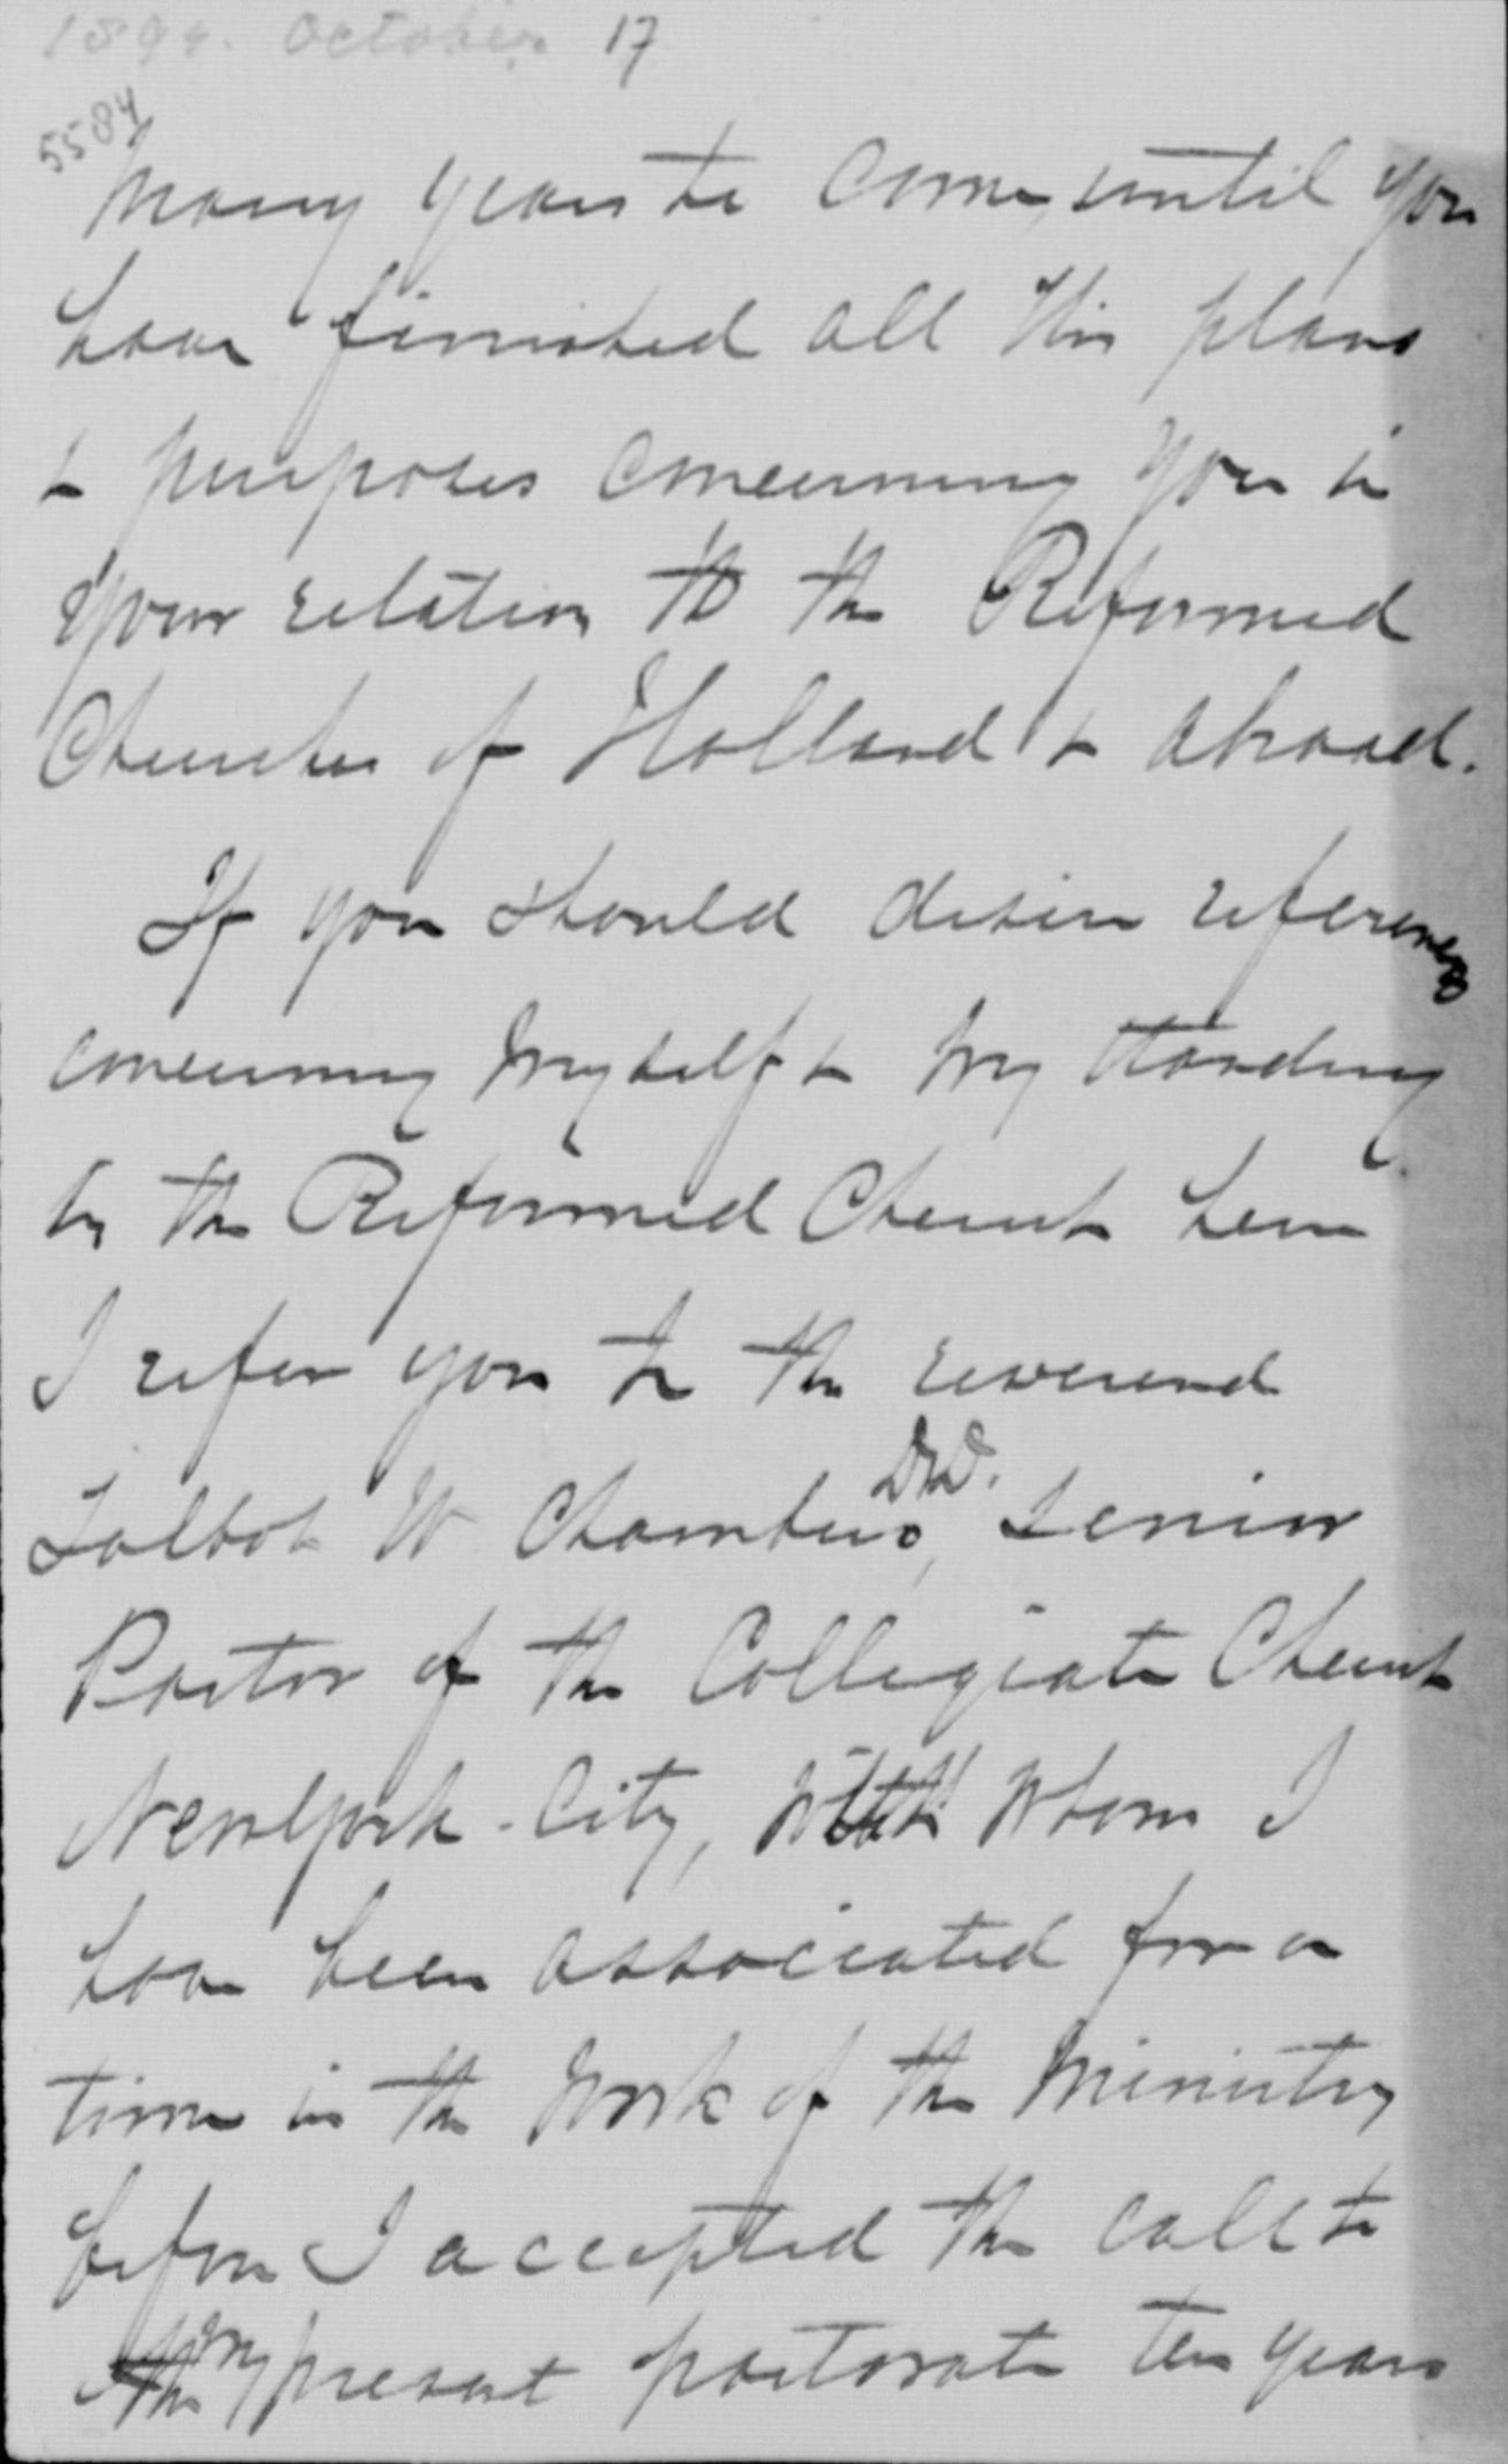 October 17
5584
many years to come, until you
have finished all His plans
& purposes concerning you in
your relation to the Reformed
Churches of Holland & abroad.
If you should desire references
concerning myself & my standing
in the Reformed Church here
I refer you to the reverend
Talbot W Chambers, D.D. Senior
Pastor of the Collegiate Church
New York City, with whom I
have been associated for a
time in the work of the ministry
before I accepted the call to
my present pastorate ten years